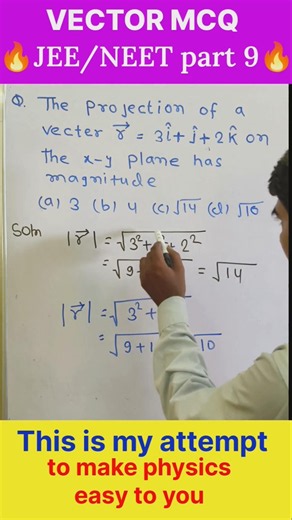 VECTOR MCQ
🔥JEE/NEET part 9🔥
Q. The projection of a
vecter r⃗ = 3î + ĵ + 2k̂ on
the x-y plane has
magnitude
(a) 3 (b) 4 (c) √14 (d) √10
Soln |r⃗| = √3² + + 2²
= √9 + = √14
|r⃗| = √3² +
= √9 + 1 10
This is my attempt
to make physics
easy to you